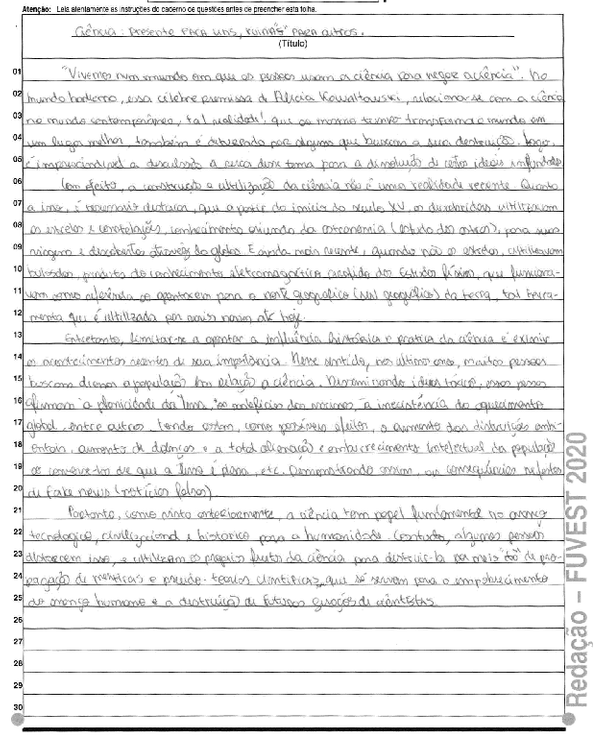 Atenção: Leia atentamente as instruções do caderno de questões antes de preencher esta folha.
Ciência: presente para uns, ruínas para outros.
(Título)
01 "Vivemos num mundo em que as pessoas usam a ciência para negar a ciência". No
02 mundo hodierno, essa célebre premissa de Alicia Kowaltowski, relaciona-se com a ciência
03 no mundo contemporâneo, tal realidade que ao mesmo tempo transforma o mundo em
04 um lugar melhor, também é deturpada por alguns que buscam a sua destruição. Logo,
05 é imprescindível a discussão a cerca desse tema para a dissolução de certos ideais infundados.
06 Com efeito, a construção e utilização da ciência não é uma realidade recente. Quanto
07 a isso, é necessário destacar, que a partir do início do século XV, os utilizavam
08 as estrelas e constelações, conhecimento oriundo da astronomia (estudo dos astros), para suas
09 viagens e descobertas através do globo. E ainda mais recente, quando não os estrelas, utilizavam
10 bússolas, produto do conhecimento eletromagnético dos Estudos físicos, que funciona-
11 vam como referência ao apontarem para o norte geográfico (sul geográfico) da terra, tal ferra-
12 menta que é utilizada por mais novos até hoje.
13 Entretanto, limitar-se a apontar a influência histórica e prática da ciência é eximir
14 os acontecimentos recentes de sua importância. Nesse sentido, nos últimos anos, muitas pessoas
15 buscam a população em relação a ciência. Disseminando ideias tóxicas, essas pessoas
16 afirmam "a planicidade da Terra", "os malefícios das vacinas, "a inexistência do aquecimento
17 global entre outros. Tendo assim, como possíveis efeitos, o aumento das destruições ambi-
18 entais, aumento de doenças e a total alienação e emburrecimento intelectual da população
19 ao convencer-los de que a Terra é plana, etc. Demonstrando assim, as consequências nefastas
20 da fake news (notícias falsas).
21 Portanto, como visto anteriormente, a ciência tem papel fundamental no avanço
22 tecnológico, civilizacional e histórico para a humanidade. Contudo, algumas pessoas
23 distorcem isso, e utilizam os próprios frutos da ciência para destruí-la por meio da pro-
24 pagação de mentiras e pseudo-teorias científicas, que só servem para o empobrecimento
25 do avanço humano e a destruição de futuras gerações de cientistas.
26
27
28
29
30
Redação – FUVEST 2020